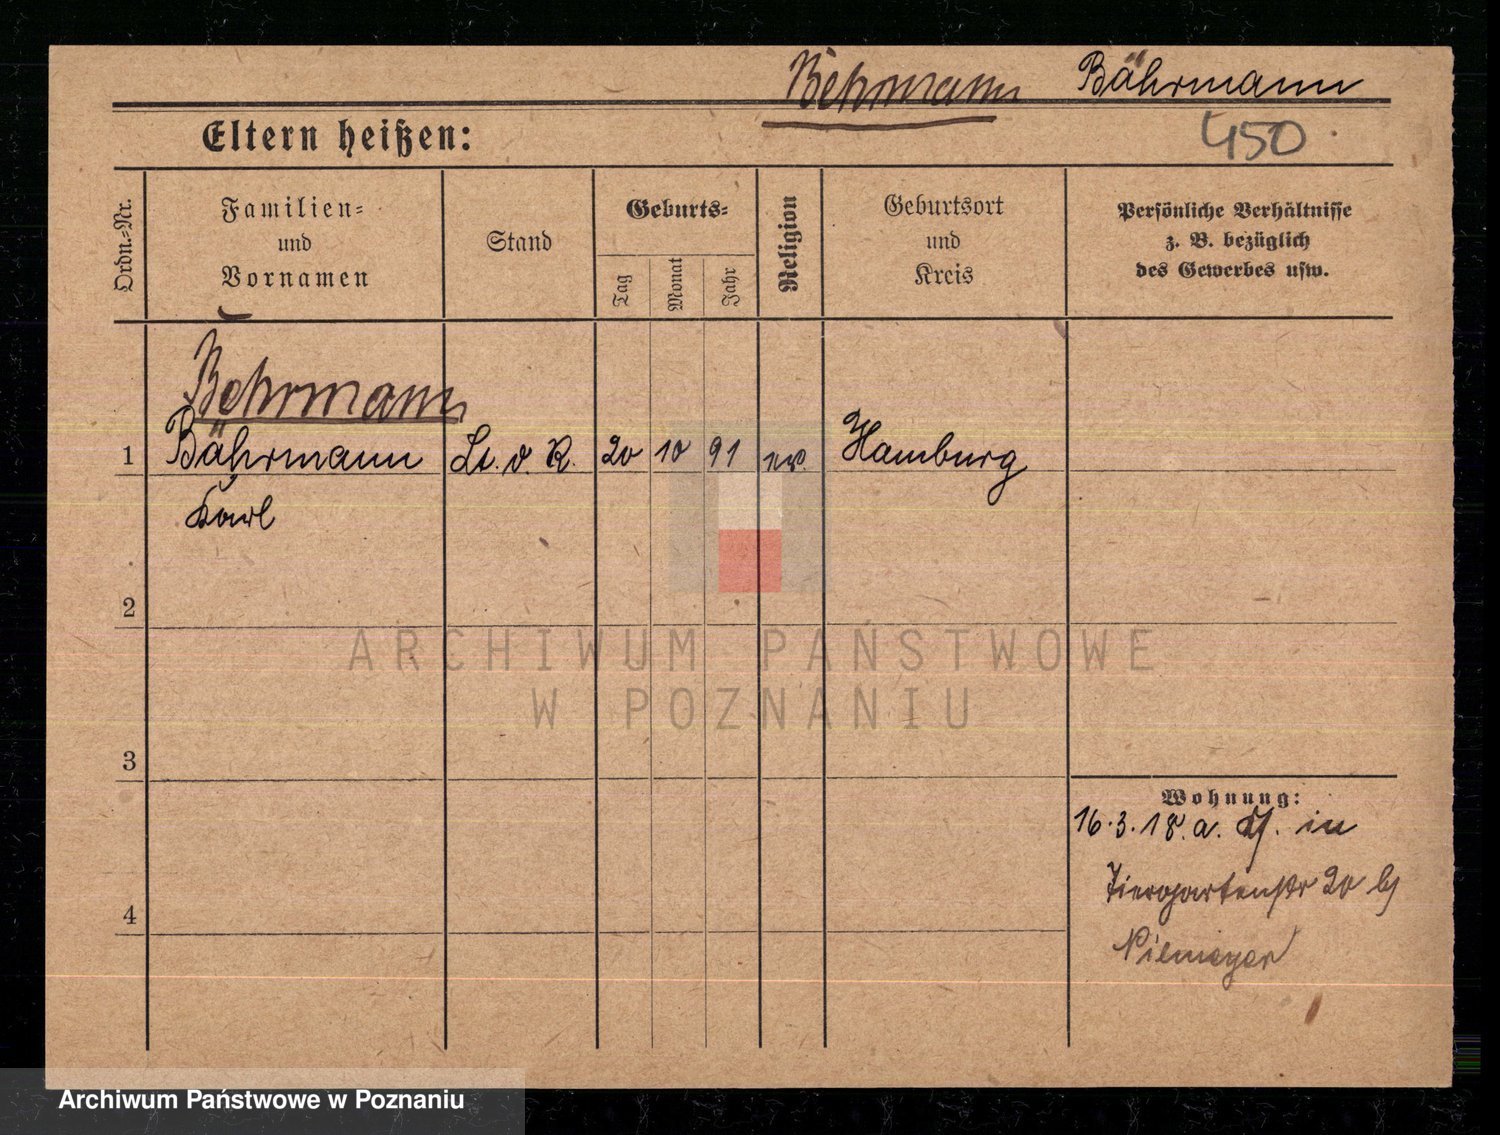 Behrmann Bährmann
Eltern heißen:
450
Ordn.-Nr.
Familien-
und
Vornamen
Stand
Geburts-
Tag
Monat
Jahr
Religion
Geburtsort
und
Kreis
Persönliche Verhältnisse
z. B. bezüglich
des Gewerbes usw.
Behrmann
1 Bährmann Lt. d. R. 20 10 91 ev. Hamburg
Karl
2
ARCHIWUM PAŃSTWOWE
W POZNANIU
3
Wohnung:
16.3.18. a. in
Tiergartenstr 20 bj
4
Niemeyer
Archiwum Państwowe w Poznaniu